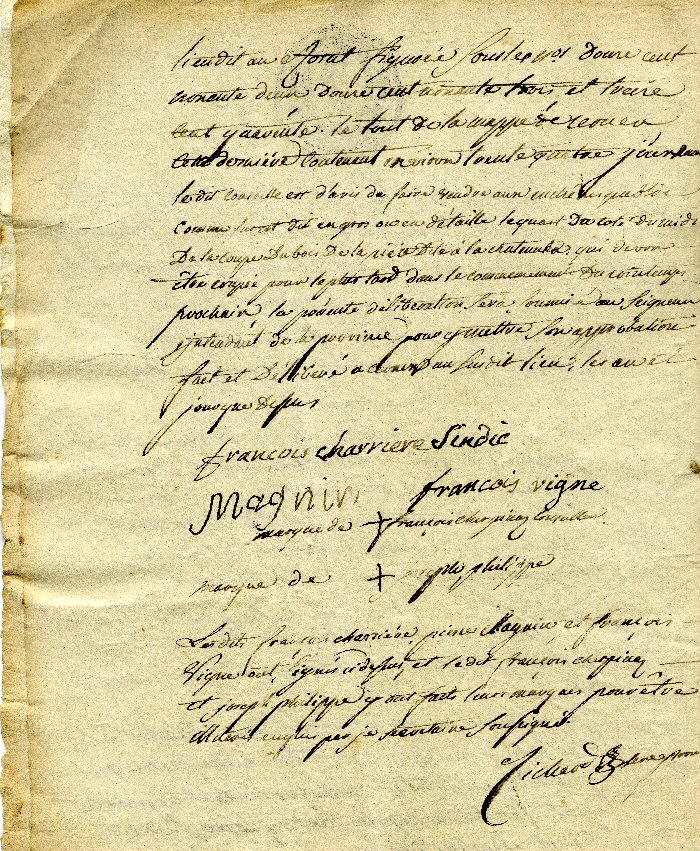 lieudit au Jorat figurée sous les nos Douze cent
nonante deux Douze cent nonante trois et treize
cent quarente le tout de la mappe de
cette derniére contenent environ trente quatre jour
le dit conseille est d'avis de faire vendre aux encheres publi
comme surtot dit en gros ou en détaille le quart Du coté du midi
De la coupe Du bois De la piéce Dite à la qui devra
étre coupée pour le plus tard dans le commencement Du
prochain la présente délibération sera soumise au Seigneur
intendant de la province pour y mettre son approbation
fait et Délibéré a au susdit lieu les an et
jour que Dessus
françois charriere Sindic
Magnin françois vigne
marque de + françois cheppinaz Conseiller
marque de + joseph philippe
Lesdits françois charriére, pierre Magnin et françois
Vigne ont signés cidessus, et ledit françois cheppinaz
et joseph philippe y ont faits leurs marques pour être
illiteré enquis par je secretaire soussigné